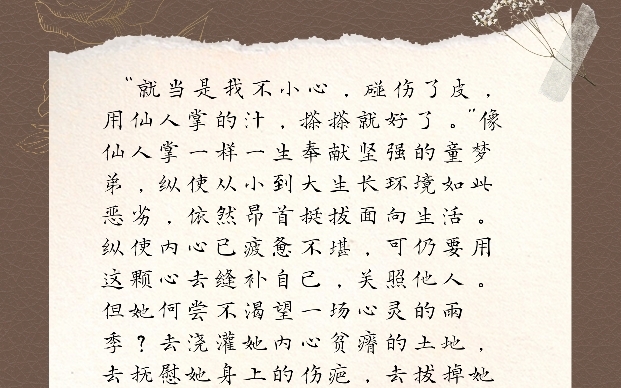 “就当是我不小心，碰伤了皮，
用仙人掌的汁，搽搽就好了。”像
仙人掌一样一生奉献坚强的童梦
弟，纵使从小到大生长环境如此
恶劣，依然昂首挺拔面向生活。
纵使内心已疲惫不堪，可仍要用
这颗心去缝补自己，关照他人。
但她何尝不渴望一场心灵的雨
季？去浇灌她内心贫瘠的土地，
去抚慰她身上的伤疤，去拔掉她